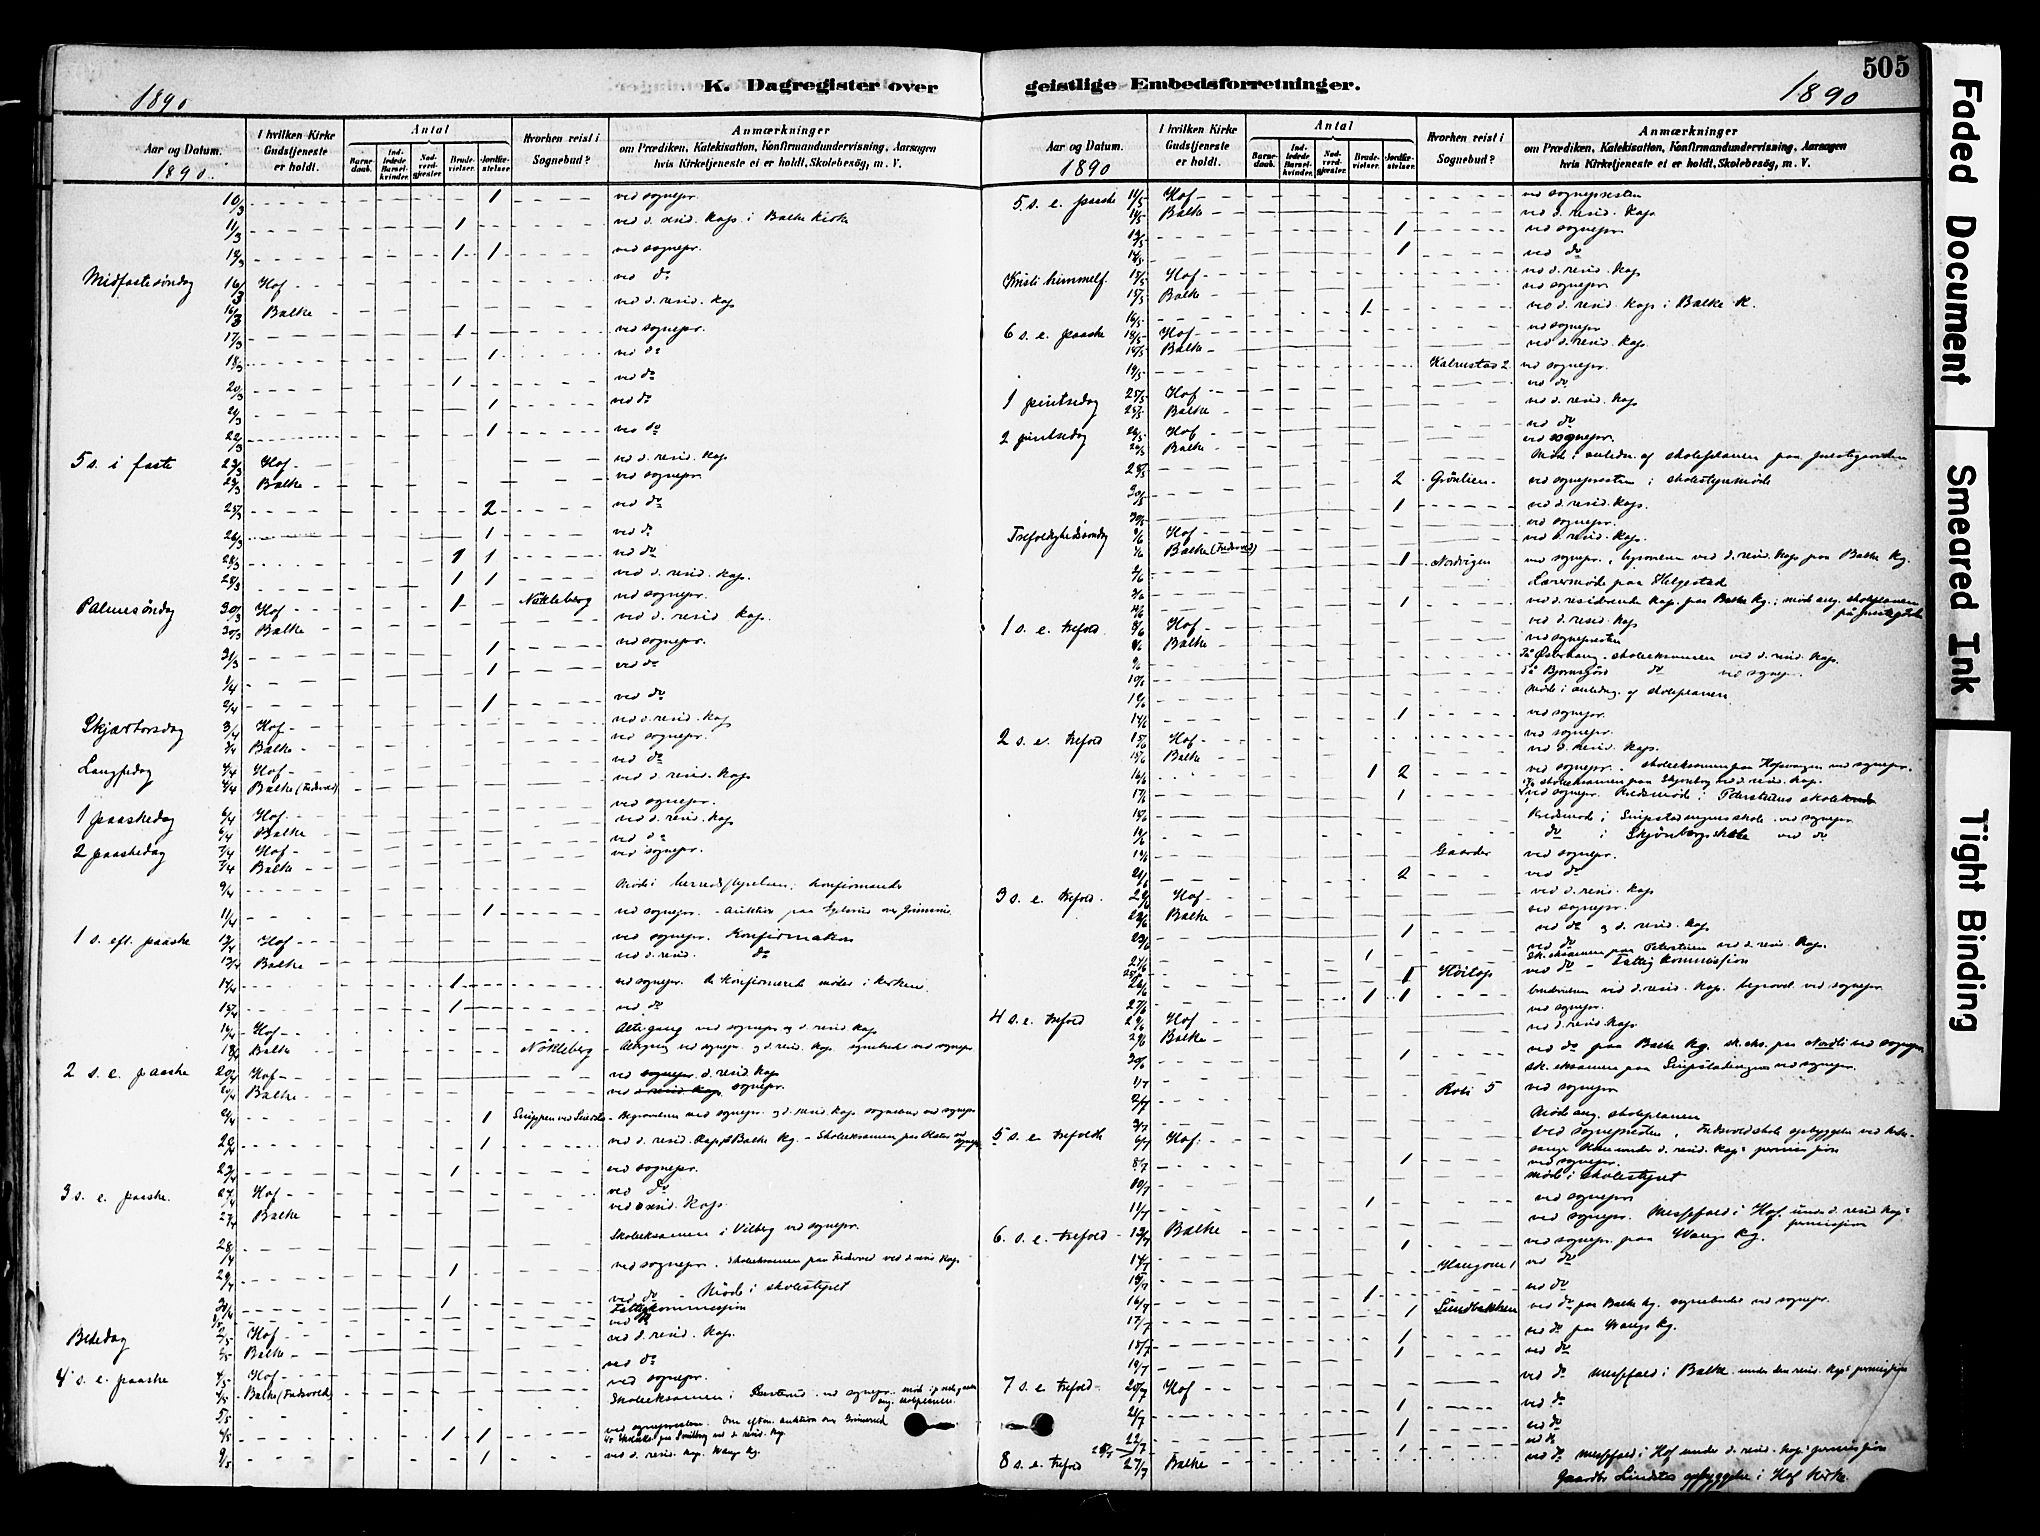 505
1890
K. Dagregister over
geistlige Embedsforretninger.
1890
Faded Document
Smeared Ink
Tight Binding
Aar og Datum.
1890.
I hvilken Kirke Gudstjeneste er holdt.
Antal
Barnedaab.
Indledede Barselkvinder.
Nadverdgjæster.
Brudevielser.
Jordfæstelser.
Hvorhen reist i Sognebud?
Anmærkninger
om Prædiken, Katekisation, Konfirmandundervisning, Aarsagen
hvis Kirketjeneste ei er holdt, Skolebesög, m. V.
10/3 1 ved sognepr.
11/3 1 ved d. resid. Kap. i Balke Kirke
12/3 1 1 ved sognepr.
Midfastesøndag 16/3 Hof ved do
16/3 Balke ved d. resid. Kap
17/3 1 ved sognepr.
18/3 1 ved do
20/3 1 ved do
21/3 1 ved do
22/3 1 ved do
5 s. i faste 23/3 Hof ved d. resid. Kap
23/3 Balke ved sognepr.
25/3 2 ved do
26/3 1 ved do
28/3 1 1 ved do
28/3 1 1 ved d. resid. Kap.
Palmesøndag 30/3 Hof 1 Nökleberg ved sognepr.
30/3 Balke ved d. resid. Kap.
31/3 1 ved sognepr.
1/4 1 ved do
2/4 1 ved do
Skjærtorsdag 3/4 Hof ved d. resid. Kap
3/4 Balke ved sognepr.
Langfredag 4/4 Hof ved do
4/4 Balke (Fredsvold) ved d. resid. Kap
1 paaskedag 6/4 Hof ved sognepr.
6/4 Balke ved d. resid. Kap
2 paaskedag 7/4 Hof ved do
7/4 Balke ved sognepr.
9/4 Møde i herredsstyrelsen; konfirmander
11/4 1 ved sognepr. - Auktion paa
1 s. eft. paaske 13/4 Hof ved sognepr. Konfirmation
13/4 Balke ved d. resid. do
14/4 1 ved sognepr. de konfirmerede møder i kirken.
15/4 1 ved do
16/4 Hof Altergang ved sognepr og d. resid. Kap
18/4 Balke Nökleberg - Altergang ved sognepr. og d. resid. Kap. sognebudet ved sognepr
2 s. e. paaske 20/4 Hof ved sognepr. d. resid. Kap
20/4 Balke ved d. resid. Kap. sognepr.
1 Begravelsen ved sognepr. og d. resid. Kap. sognebud ved sognepr
1 ved d. resid. Kap. på Balke Kg. - Skoleeksamen paa
1 ved sognepr.
3 s. e. paaske. 27/4 Hof ved do
27/4 Balke ved resid. Kap.
28/4 Skoleeksamen i Vilberg ved sognepr.
29/4 1 ved sognepr. Skoleeksamen paa Fredsvold ved d. resid. Kap.
30/4 1 ved do - Møde i skolestyret
Fattigkommission
Bededag 2/5 Hof ved d. resid. Kap.
2/5 Balke ved do
4 s. e. paaske 4/5 Hof ved sognepr.
4/5 Balke (Fredsvold) Skoleeksamen i ved sognepr.
5/5
6/5 1 1 ved sognepresten. Om efterm. auktion over
9/5 1 ved d. resid. kap. Wangs Kg.
Aar og Datum.
1890
I hvilken Kirke Gudstjeneste er holdt.
Antal
Barnedaab.
Indledede Barselkvinder.
Nadverdgjæster.
Brudevielser.
Jordfæstelser.
Hvorhen reist i Sognebud?
Anmærkninger
om Prædiken, Katekisation, Konfirmandundervisning, Aarsagen
hvis Kirketjeneste ei er holdt, Skolebesög, m. V.
5. s. e. paaske 11/5 Hof ved sognepresten
11/5 Balke ved d. resid. Kap
12/5 1 ved sognepr
14/5 1 ved do
Kristi himmelf. 15/5 Hof ved d. resid. Kap
15/5 Balke ved sognepr
16/5 1 ved d. resid. Kap i Balke K.
6 s. e. paaske 18/5 Hof ved sognepr
18/5 Balke ved d. resid. Kap.
19/5 Kalrustad 2 ved sognepr.
1 pintsedag 25/5 Hof ved do
25/5 Balke ved d. resid. Kap
2 pintsedag 26/5 Hof ved do
26/5 Balke ved sognepr.
28/5 Møde i anledn. af skoleplanen paa prestegaarden
30/5 2 Grönlien ved sognepresten; skolestyremøde
30/5 1 ved d. resid. Kap.
Trefoldighedssøndag 1/6 Hof ved sognepr.
1/6 Balke (Fredsvold) ved d. resid. Kap.
2/6 1 Nordrigen ved sognepr., bysognet ved d. resid. Kap paa Balke Kg.
3/6 Lærermøde paa Helgestad
4/6 1 ved d. residerende Kap. paa Balke Kg.; møde ang. skoleplanen
1 s. e. trefold. 8/6 Hof ved d. resid. Kap
8/6 Balke ved sognepresten
9/6 På Østerhaug skoleeksamen ved d. resid. Kap.
10/6 På Bjørnsgård do ved sognepr.
12/6 Møde i anledng. af skoleplanen
14/6 1 ved sognepr.
2 s. e. trefold 15/6 Hof ved sognepr.
15/6 Balke ved d. resid. Kap.
16/6 1 2 ved sognepr. skoleeksamen paa Hofsvangen ved sognepr.
skoleeksamen paa Skjønberg ved d. resid. Kap.
17/6 1 ved sognepr. Kredsmøde i Peterstuens skole
18/6 Kredsmøde i skole ved sognepr
19/6 do i Skjønbergs skole ved do
19/6 Gaarder ved sognepr.
21/6 2 ved do
3 s. e. trefold. 22/6 Hof ved d. resid. Kap
22/6 Balke ved sognepr.
23/6 1 ved do og d. resid. Kap
24/6 1 ved do
Sk. eksamen paa Peterstuen ved d. resid. Kap.
25/6 1 Höitop ved do - Fattigkommission
26/6 1 1 brudevielsen ved d. resid. Kap. begravel. ved sognepr
27/6 ved sognepr.
4 s. e. trefold 29/6 Hof ved d. resid. Kap
29/6 Balke
30/6 1 ved do paa Balke Kg. sk. eks. paa Nordli ved sognepr.
1/7 Sk. eksamen paa ved sognepr.
2/7 Roti 5 ved sognepr
3/7 Møde ang. skoleplanen
5 s. e. trefoldh 6/7 Hof. ved sognepresten, Fredsvold skole opbyggelse ved
under d. resid. Kap's permission
8/7 1 ved sognepr.
10/7 møde i skolestyret
11/7 1 ved sognepr
6. s. e. trefold 13/7 Balke ved sognepr. Messefald i Hof under d. resid. Kap's permission
14/7 1 ved sognepr. paa Wangs Kg.
15/7 Haugom 1 ved do
16/7 1 ved do
17/7 1 Lundbakken ved do paa Balke Kg. sognebudet ved sognepr.
18/7 1 ved do paa Wangs Kg.
19/7 1 ved do
7 s. e. trefold 20/7 Hof ved do Messefald i Balke under den resid. Kap's permission
21/7 1 ved do
22/7 1 ved do
26/7 1 ved do
8 s. e. trefold 27/7 Balke ved do Messefald i Hof under d. resid. Kap's permission
opbyggelse i Hof Kirke.